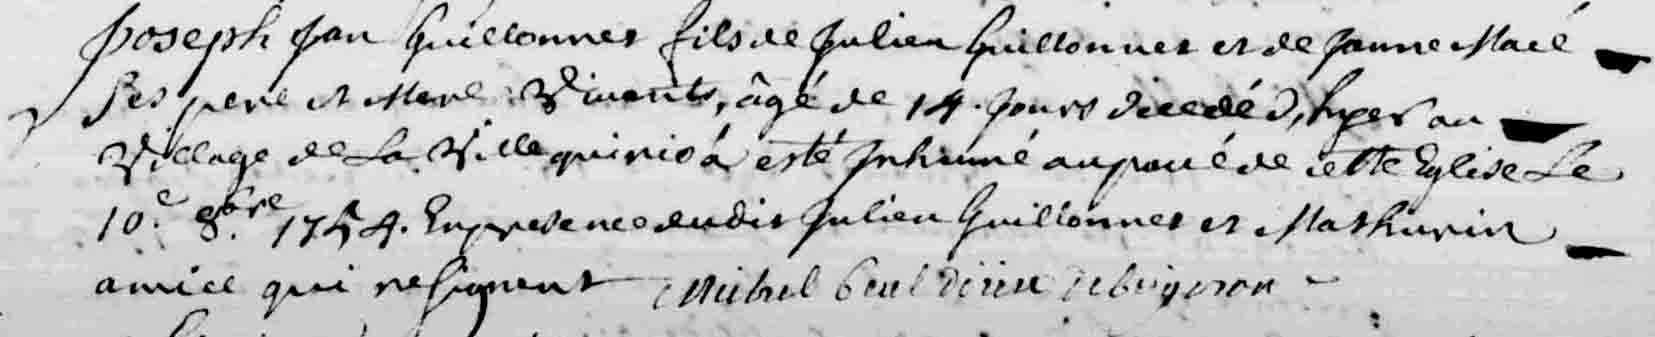 Joseph Jan Guillonnet fils de Julien Guillonnet et de Janne Macé
Ses pere et Mere Vivants, âgé de 14. Jours decedé d'hyer au
Village de La Ville quirio a esté Inhumé au pavé de cette Eglise Le
10.e 8.bre 1754. En presence dudit Julien Guillonnet et Mathurin
amice qui ne signent Michel